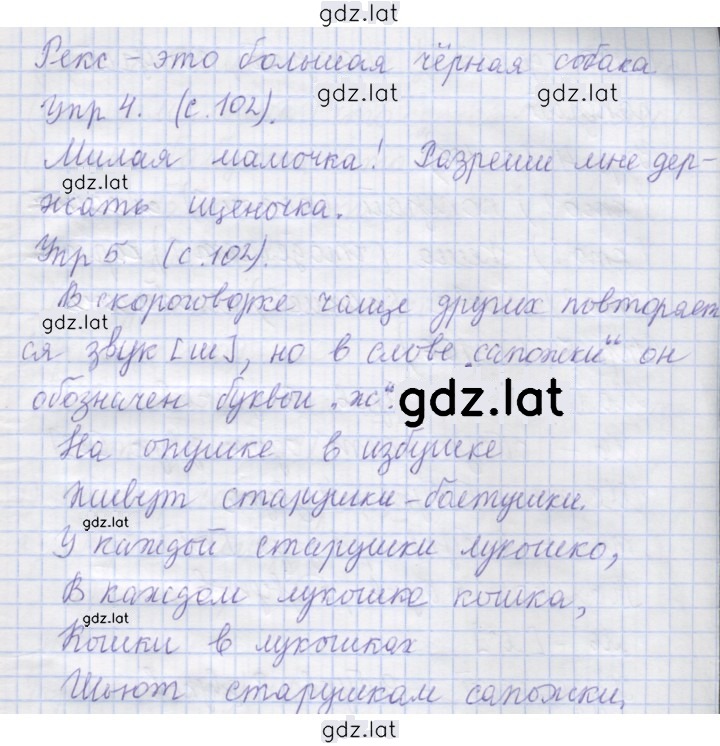 gdz.lat
Рекс - это большая чёрная собака
gdz.lat
gdz.lat
Упр 4. (с. 102).
Милая мамочка! Разреши мне дер-
gdz.lat
жать щеночка.
Упр 5 (с. 102).
В скороговорке чаще других повторает
gdz.lat
ся звук [ш], но в слове „сапожки“ он
обозначен буквой „ж“.
gdz.lat
На опушке в избушке
Живут старушки-болтушки.
gdz.lat
У каждой старушки лукошко,
В каждом лукошке кошка,
gdz.lat
Кошки в лукошках
Шьют старушкам сапожки.
gdz.lat